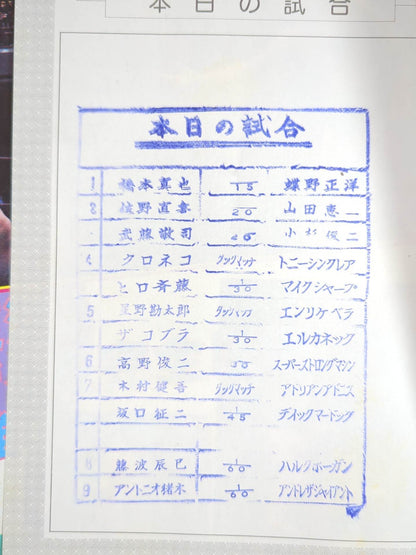 本日の試合
本日の試合
1 橋本真也 15 蝶野正洋
佐野直喜 20 山田恵一
武藤敬司 20 小杉俊二
4 クロネコ タッグマッチ トニーシンクレア
ヒロ斉藤 1/30 マイクシャープ
5 星野勘太郎 タッグマッチ エンリケベラ
ザコブラ 1/30 エルカネック
6 高野俊二 30 スーパーストロングマシン
7 木村健吾 タッグマッチ アドリアンアドニス
坂口征二 1/45 デイックマードック
8 藤波辰巳 1/60 ハルクホーガン
9 アントニオ猪木 1/60 アンドレザジャイアント